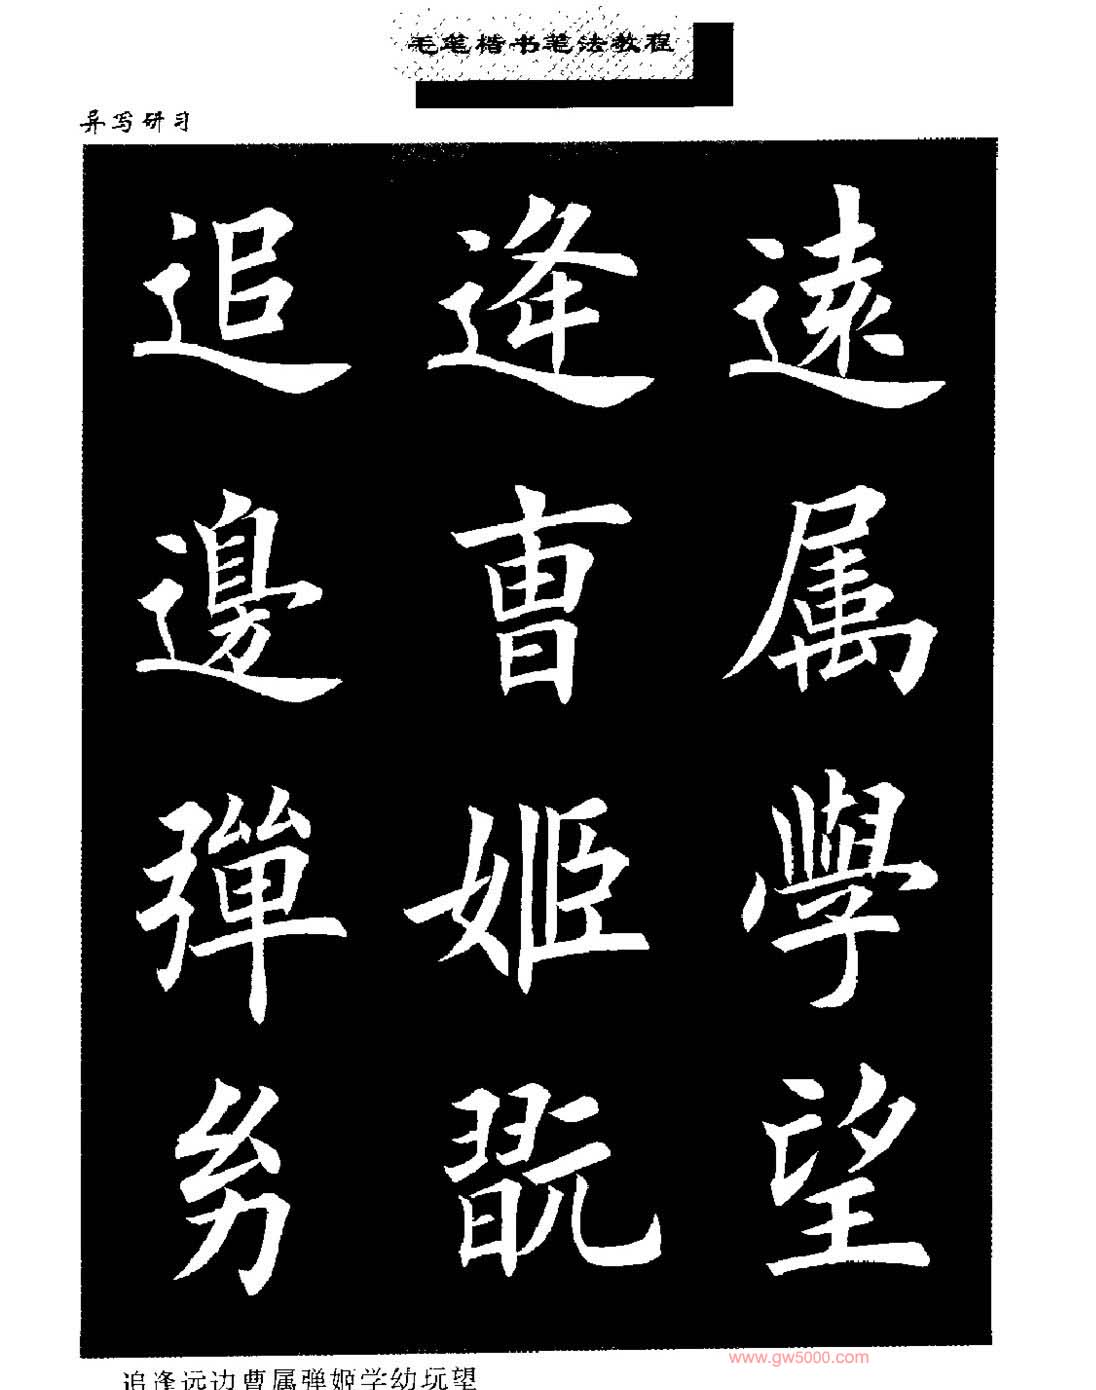 毛笔楷书笔法教程
异写研习
追逄遠
邊曺属
彈姬學
㓜翫望
www.gw5000.com
追逢远边曹属弹姬学幼玩望